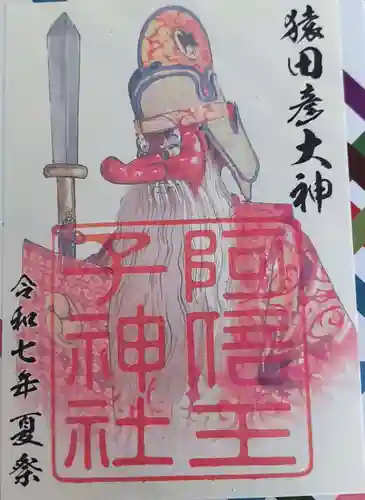 猿田彦大神
阿信王
子神社
令和七年夏祭